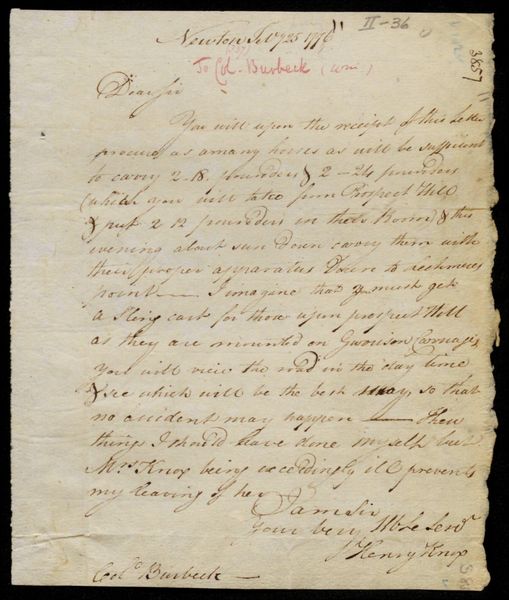 II-36
3857
Newton Feby 25 1776
To Col. Burbeck (Wm)
Dear Sir
You will upon the receipt of this Letter
procure as a many horses as will be sufficient
to carry 2-18 pounders & 2-24 pounders
(which you will take from Prospect Hill
& put 2 12 pounders in their Room) & this
evening about sun down carry them with
their proper apparatus Down to Lechmeres
point — I imagine that you must get
a Sling cart for those upon prospect Hill
as they are mounted on Garrison Carriages
You will view the road in the day time
& see which will be the best way, so that
no accident may happen — These
things I should have done myself but
Mrs Knox being exceedingly ill prevents
my leaving of her
I am Sir
Your very Hble Servt
Henry Knox
Colo Burbeck —